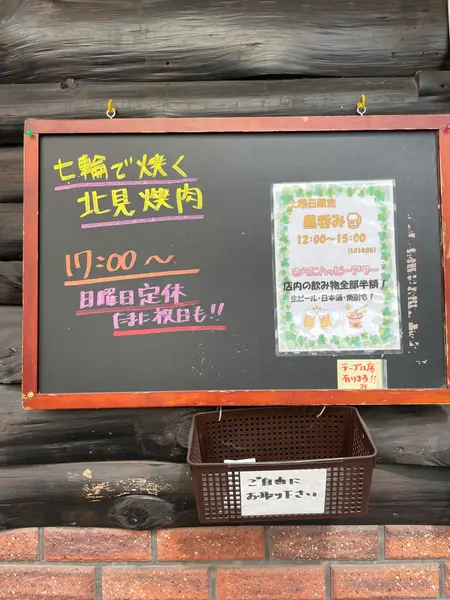 七輪で焼く
北見焼肉
17:00〜
日曜日定休
たまに祝日も!!
土曜日限定
昼呑み
12:00〜15:00
さらにハッピーアワー
店内の飲み物全部半額!
生ビール・日本酒・焼酎も!
テーブル席
あります!!
ご自由に
お取り下さい